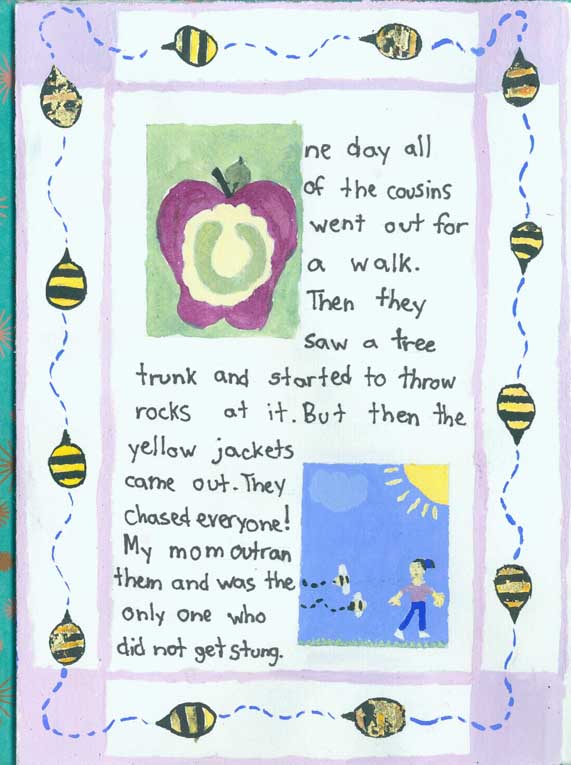 One day all
of the cousins
went out for
a walk.
Then they
saw a tree
trunk and started to throw
rocks at it. But then the
yellow jackets
came out. They
chased everyone!
My mom outran
them and was the
only one who
did not get stung.